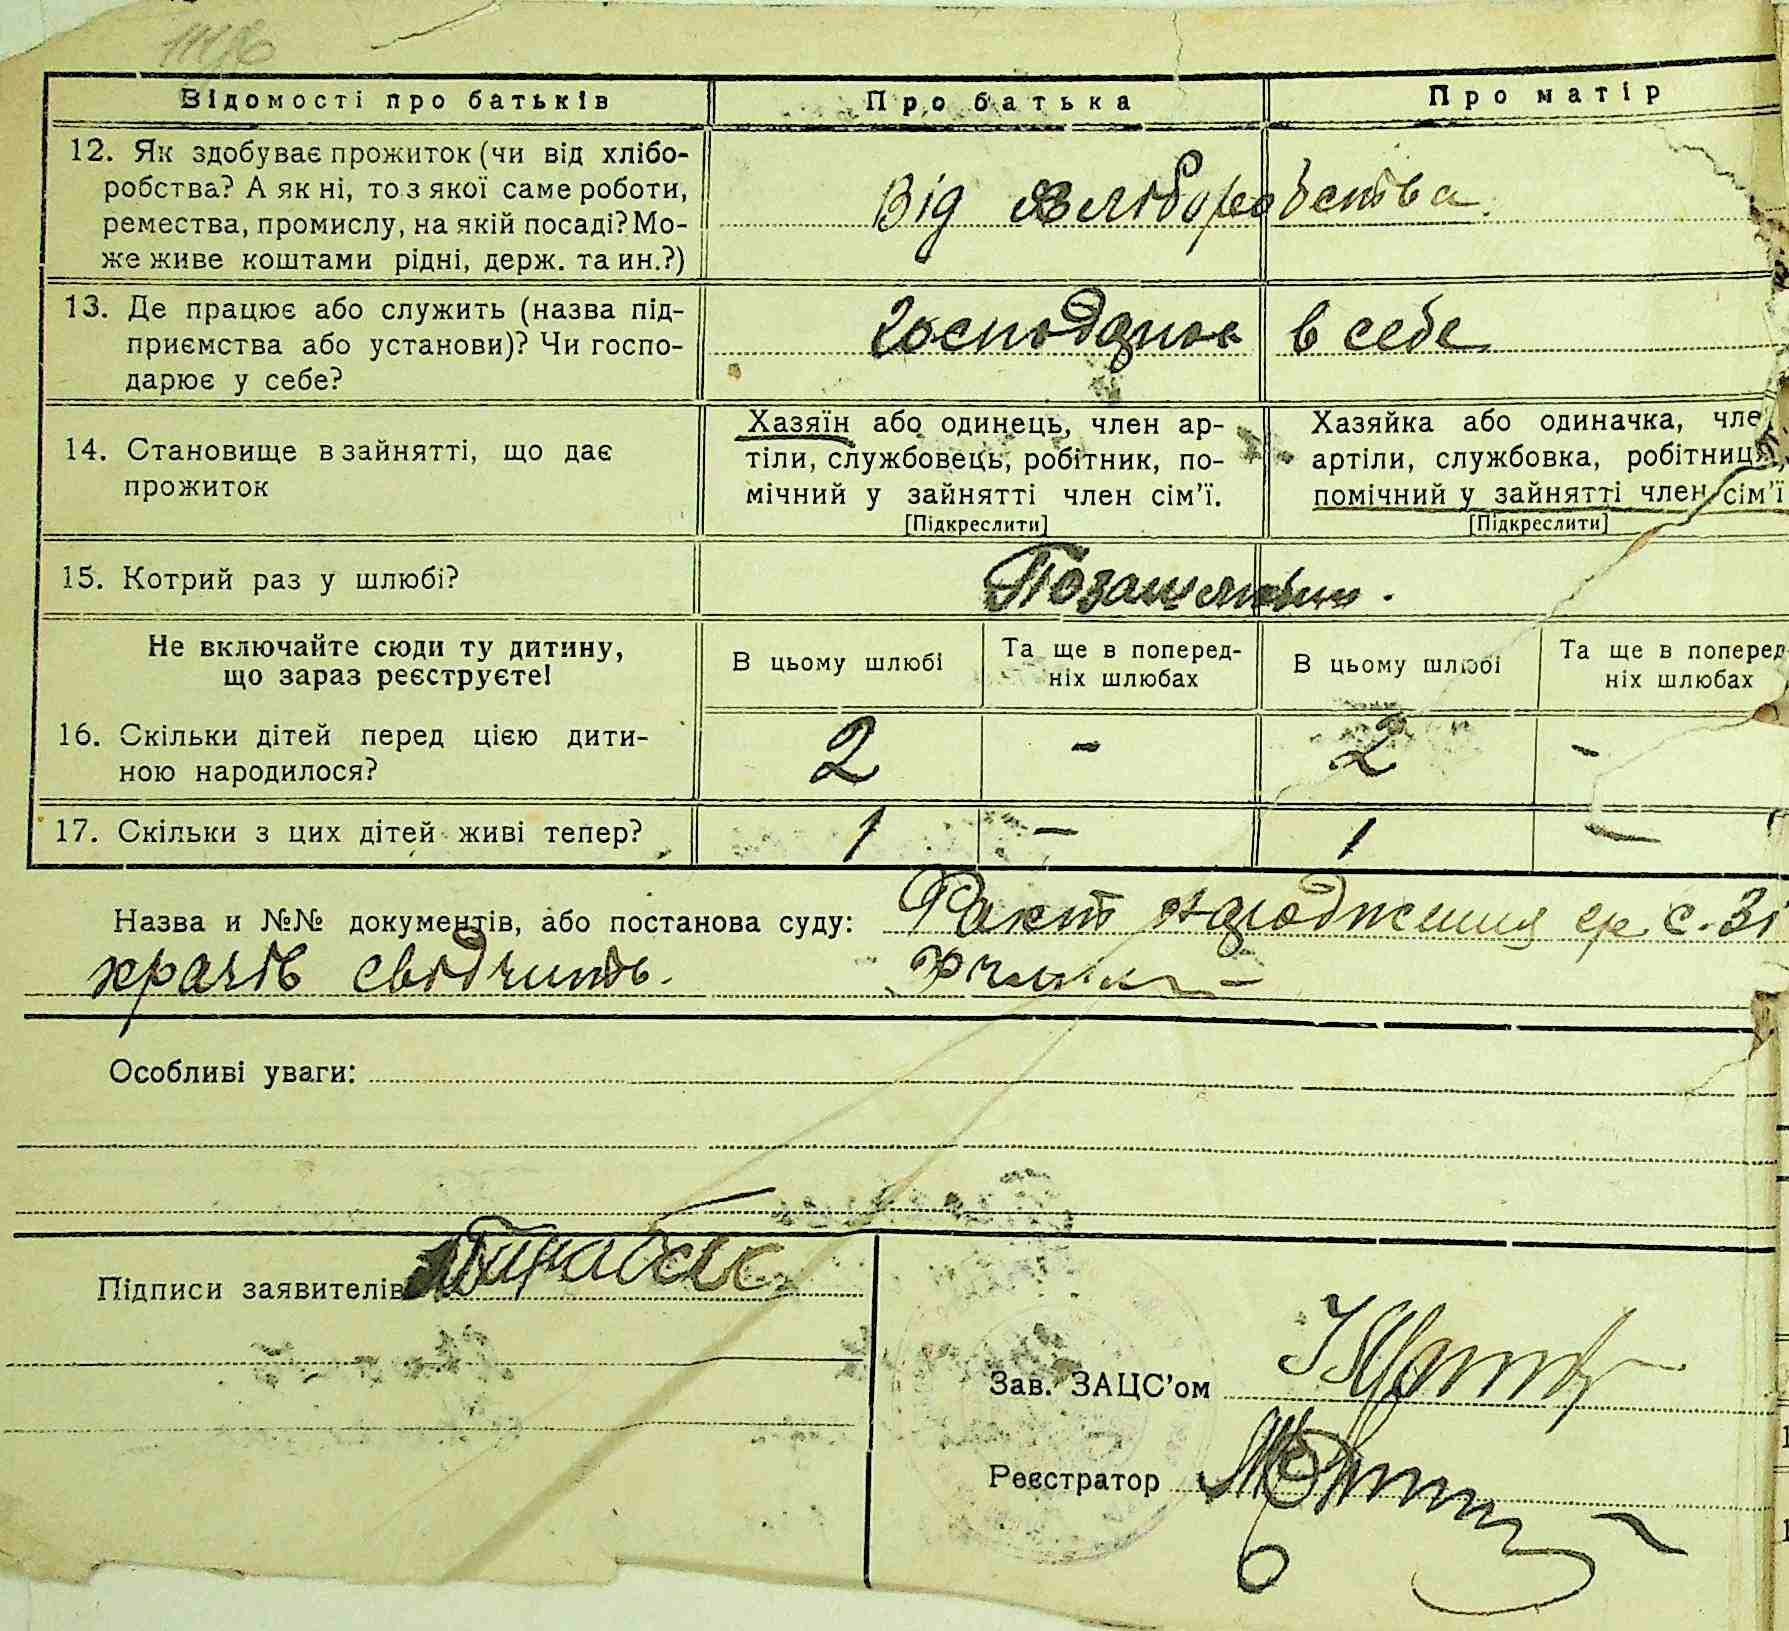 Відомості про батьків
Про батька
Про матір
12. Як здобуває прожиток (чи від хлібо-
робства? А як ні, то з якої саме роботи,
ремества, промислу, на якій посаді? Мо-
же живе коштами рідні, держ. та ин.?)
Від хліборобства
13. Де працює або служить (назва під-
приємства або установи)? Чи госпо-
дарює у себе?
господарює в себе
14. Становище в зайнятті, що дає
прожиток
Хазяїн або одинець, член ар-
тіли, службовець, робітник, по-
мічний у зайнятті член сім'ї.
[Підкреслити]
Хазяйка або одиначка, чле
артіли, службовка, робітниця,
помічний у зайнятті член сім'ї
[Підкреслити]
15. Котрий раз у шлюбі?
Не включайте сюди ту дитину,
що зараз реєструєте!
В цьому шлюбі
Та ще в поперед-
ніх шлюбах
В цьому шлюбі
Та ще в поперед-
ніх шлюбах
16. Скільки дітей перед цією дити-
ною народилося?
2 - 2 -
17. Скільки з цих дітей живі тепер?
1 - 1 -
Назва и №№ документів, або постанова суду: Факт народження гр. с. Зі
храчів свідчить.
Особливі уваги:
Підписи заявителів
Зав. ЗАЦС'ом
Реєстратор